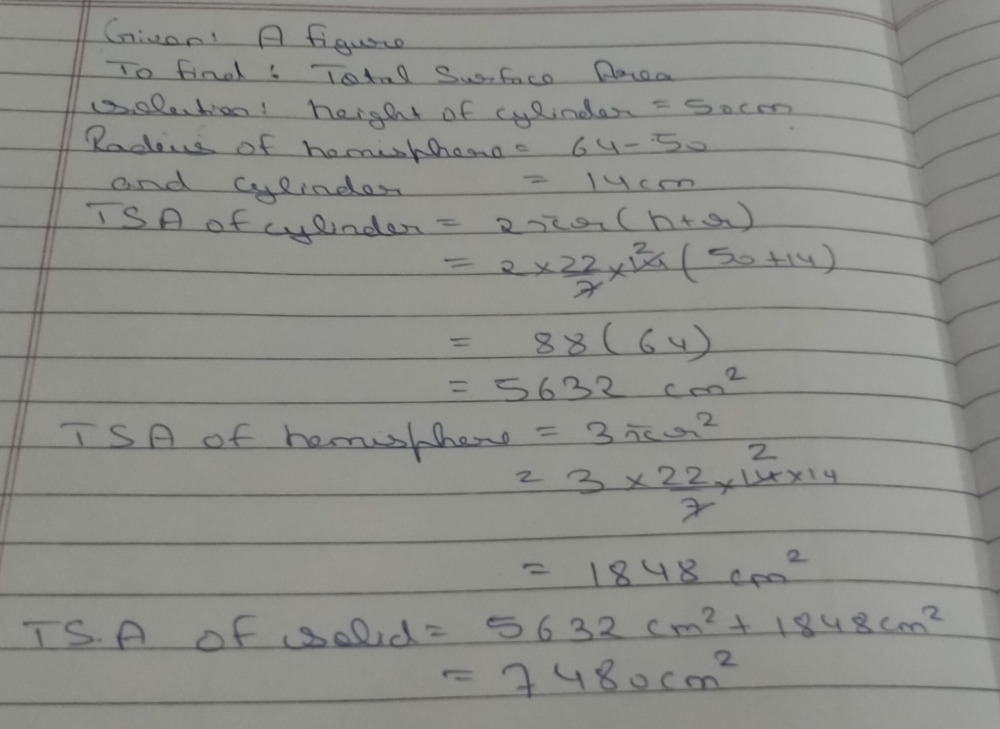 Given: A figure
To find: Total Surface Area
Solution: height of cylinder = 50cm
Radius of hemisphere = 64-50
and cylinder = 14cm
TSA of cylinder = 2πr(h+r)
= 2 × 22/7 × 14 2 (50+14)
= 88(64)
= 5632 cm²
TSA of hemisphere = 3πr²
= 3 × 22/7 × 14 2 × 14
= 1848 cm²
TS.A of solid = 5632 cm² + 1848cm²
= 7480cm²